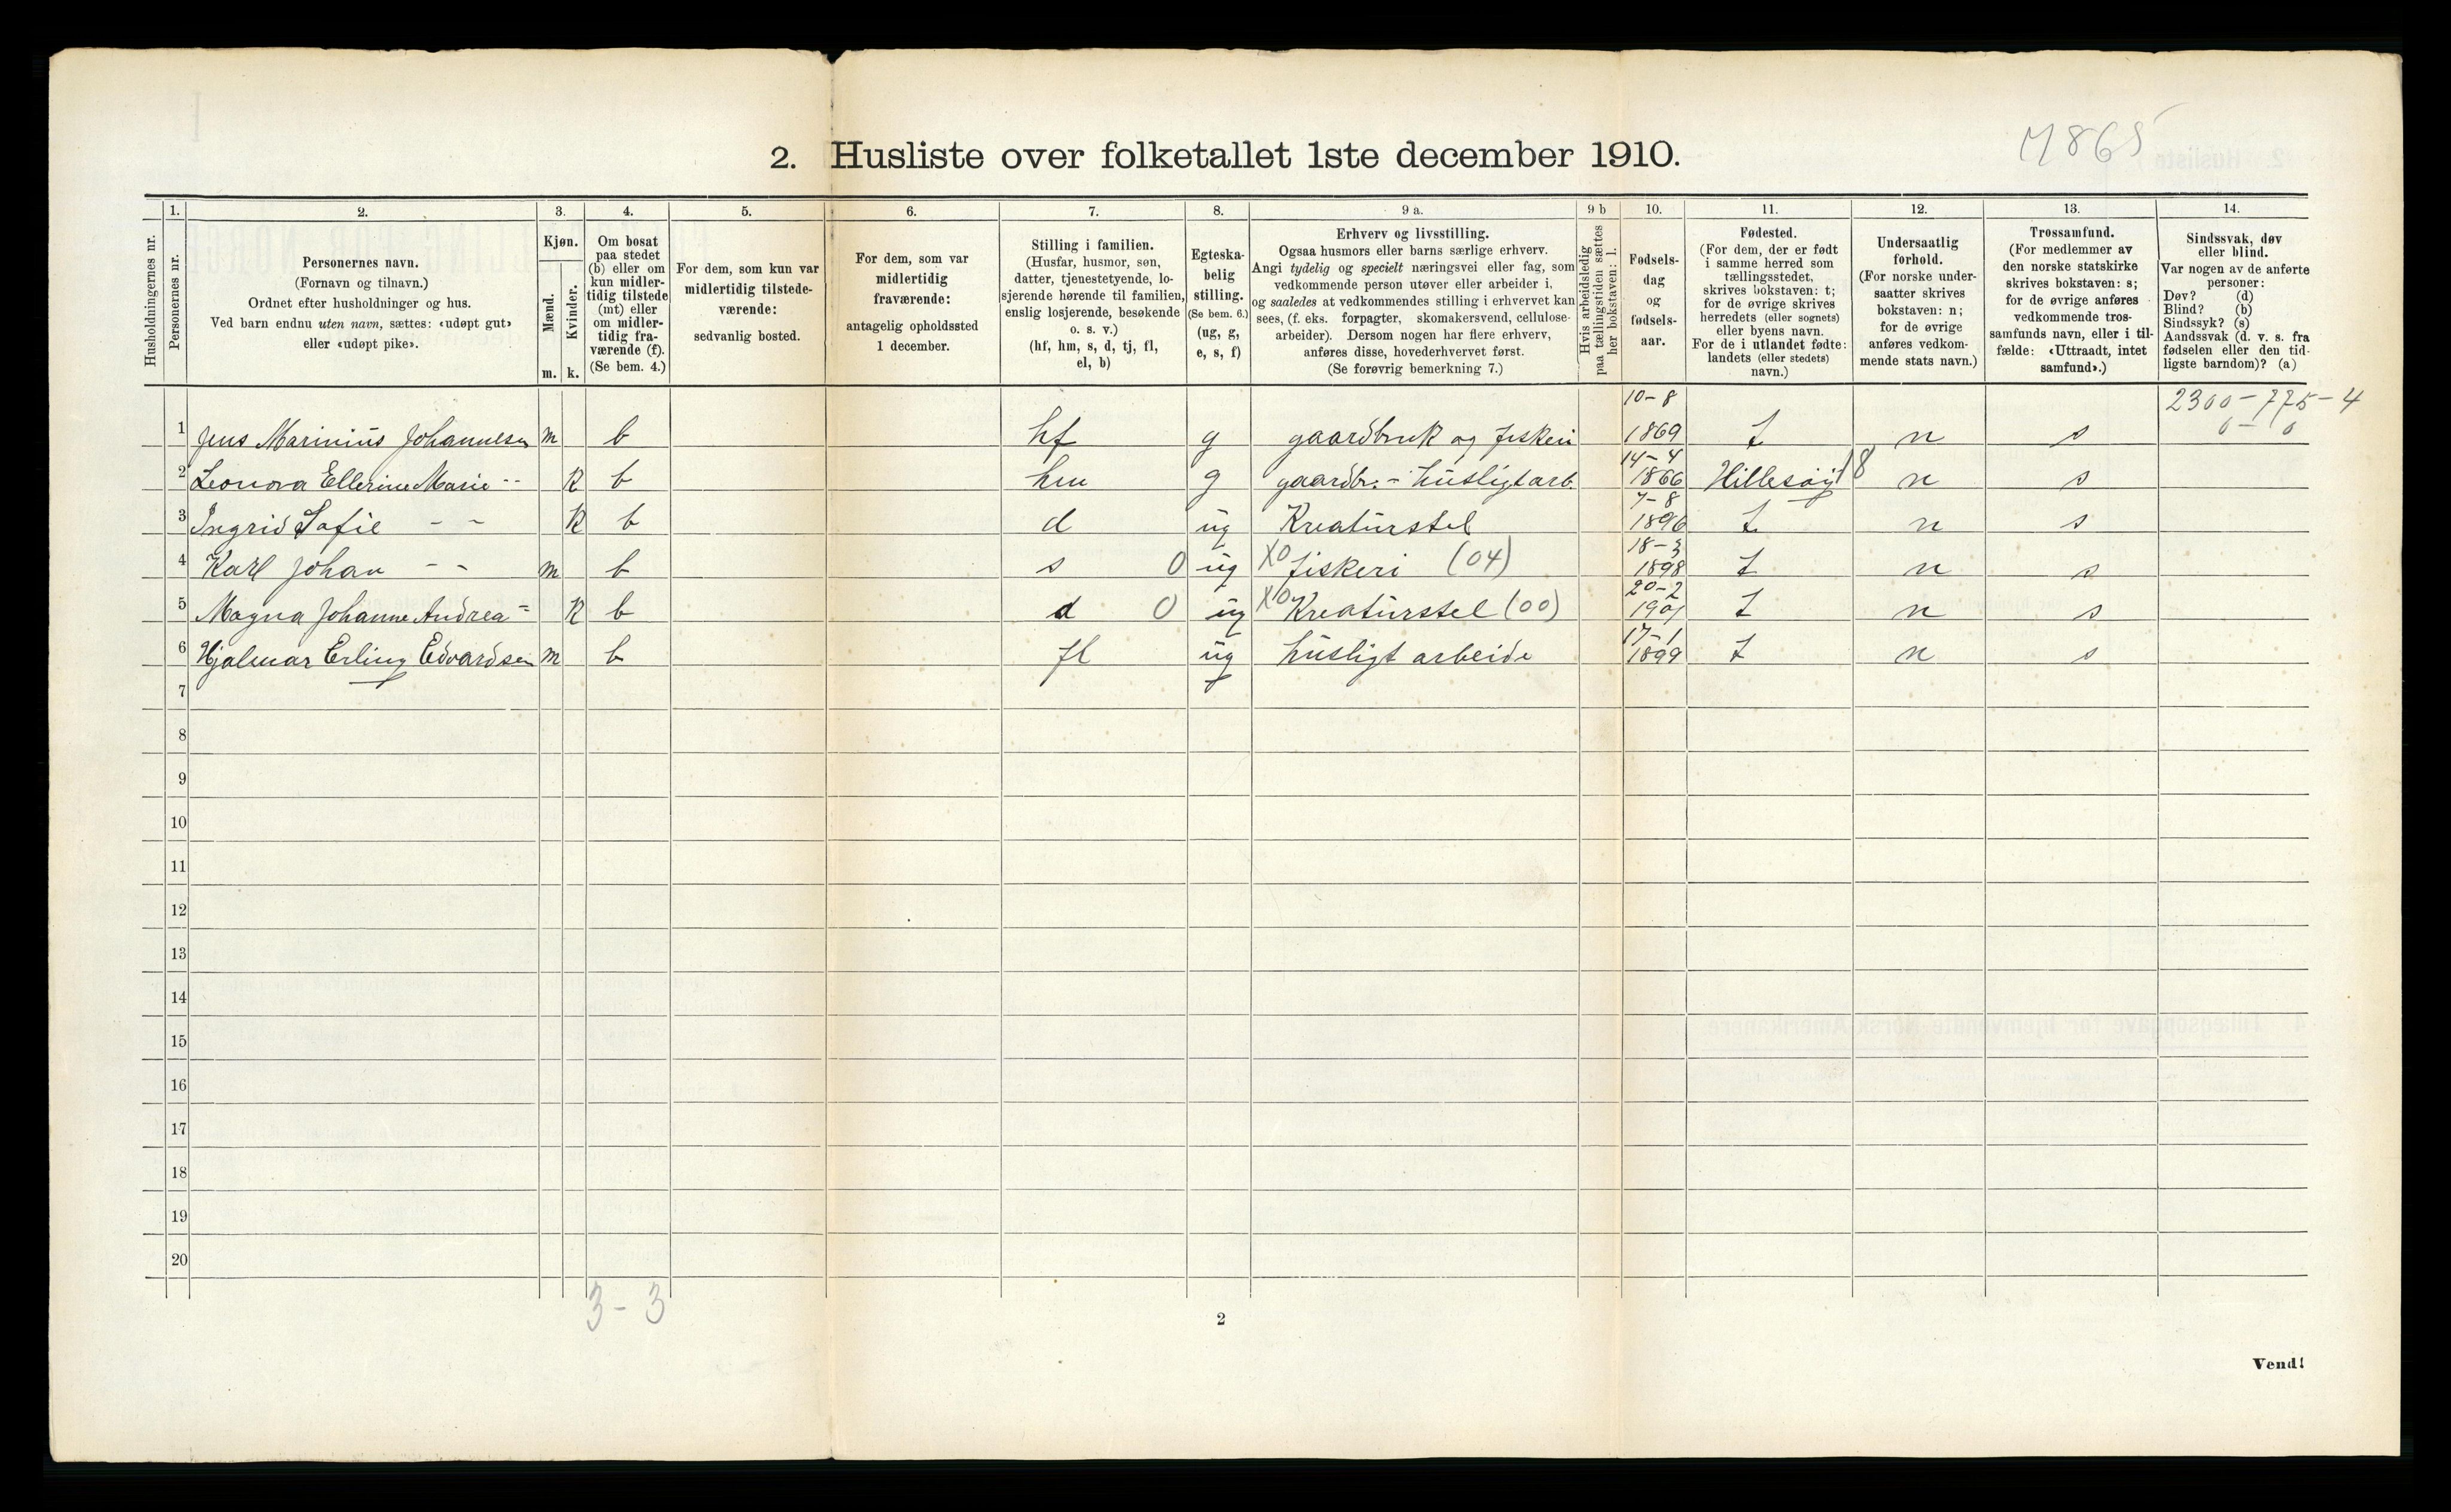 7865
2. Husliste over folketallet 1ste december 1910.
1. 2. 3. 4. 5. 6. 7. 8. 9 a. 9 b 10. 11. 12. 13. 14.
Husholdningernes nr.
Personernes nr.
Personernes navn.
(Fornavn og tilnavn.)
Ordnet efter husholdninger og hus.
Ved barn endnu uten navn, sættes: «udøpt gut»
eller «udøpt pike».
Kjøn.
Mænd.
Kvinder.
m. k.
Om bosat
paa stedet
(b) eller om
kun midler-
tidig tilstede
(mt) eller
om midler-
tidig fra-
værende (f).
(Se bem. 4.)
For dem, som kun var
midlertidig tilstede-
værende:
sedvanlig bosted.
For dem, som var
midlertidig
fraværende:
antagelig opholdssted
1 december.
Stilling i familien.
(Husfar, husmor, søn,
datter, tjenestetyende, lo-
sjerende hørende til familien,
enslig losjerende, besøkende
o. s. v.)
(hf, hm, s, d, tj, fl,
el, b)
Egteska-
belig
stilling.
(Se bem. 6.)
(ug, g,
e, s, f)
Erhverv og livsstilling.
Ogsaa husmors eller barns særlige erhverv.
Angi tydelig og specielt næringsvei eller fag, som
vedkommende person utøver eller arbeider i,
og saaledes at vedkommendes stilling i erhvervet kan
sees, (f. eks. forpagter, skomakersvend, cellulose-
arbeider). Dersom nogen har flere erhverv,
anføres disse, hovederhvervet først.
(Se forøvrig bemerkning 7.)
Hvis arbeidsledig
paa tællingstiden sættes
her bokstaven: l.
Fødsels-
dag
og
fødsels-
aar.
Fødested.
(For dem, der er født
i samme herred som
tællingsstedet,
skrives bokstaven: t;
for de øvrige skrives
herredets (eller sognets)
eller byens navn.
For de i utlandet fødte:
landets (eller stedets)
navn.)
Undersaatlig
forhold.
(For norske under-
saatter skrives
bokstaven: n;
for de øvrige
anføres vedkom-
mende stats navn.)
Trossamfund.
(For medlemmer av
den norske statskirke
skrives bokstaven: s;
for de øvrige anføres
vedkommende tros-
samfunds navn, eller i til-
fælde: «Uttraadt, intet
samfund».)
Sindssvak, døv
eller blind.
Var nogen av de anførte
personer:
Døv? (d)
Blind? (b)
Sindssyk? (s)
Aandssvak (d. v. s. fra
fødselen eller den tid-
ligste barndom)? (a)
10-8 2300-775-4
1 Jens Marinius Johannesen m b hf g gaardbruk og fiskeri 1869 t n s 0 - 0
14-4
2 Leonora Ellerine Marie -"- K b hm g gaardbr. - husligt arb. 1866 Hillesøy 18 n s
7-8
3 Ingrid Sofie - " - K b d ug Kreaturstel 1896 t n s
18-3
4 Karl Johan - " - m b s 0 ug X0 fiskeri (04) 1898 t n s
20-2
5 Magna Johanne Andrea -"- K b d 0 ug X0 Kreaturstel (00) 1901 t n s
17-1
6 Hjalmar Erling Edvardsen m b fl ug husligt arbeide 1899 t n s
7
8
9
10
11
12
13
14
15
16
17
18
19
20
3 - 3
2
Vend!